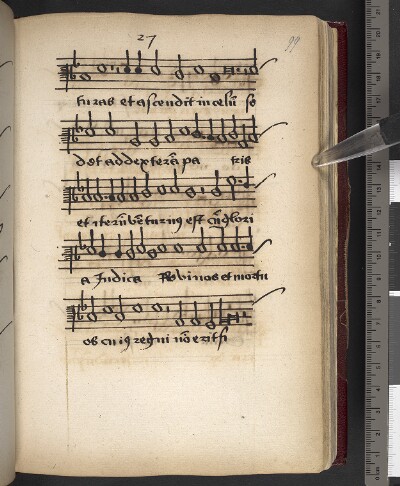 27
99
turas et ascendit in celū se
det ad dexterā pa tris
et iterū venturus est cū glori
a Iudica re vivos et mortu
os cuiꝰ regni nō erit fi